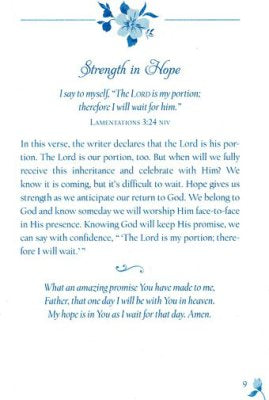 Strength in Hope
I say to myself, "The LORD is my portion;
therefore I will wait for him."
LAMENTATIONS 3:24 NIV
In this verse, the writer declares that the Lord is his por-
tion. The Lord is our portion, too. But when will we fully
receive this inheritance and celebrate with Him? We
know it is coming, but it's difficult to wait. Hope gives us
strength as we anticipate our return to God. We belong to
God and know someday we will worship Him face-to-face
in His presence. Knowing God will keep His promise, we
can say with confidence, " 'The Lord is my portion; there-
fore I will wait.' "
What an amazing promise You have made to me,
Father, that one day I will be with You in heaven.
My hope is in You as I wait for that day. Amen.
9